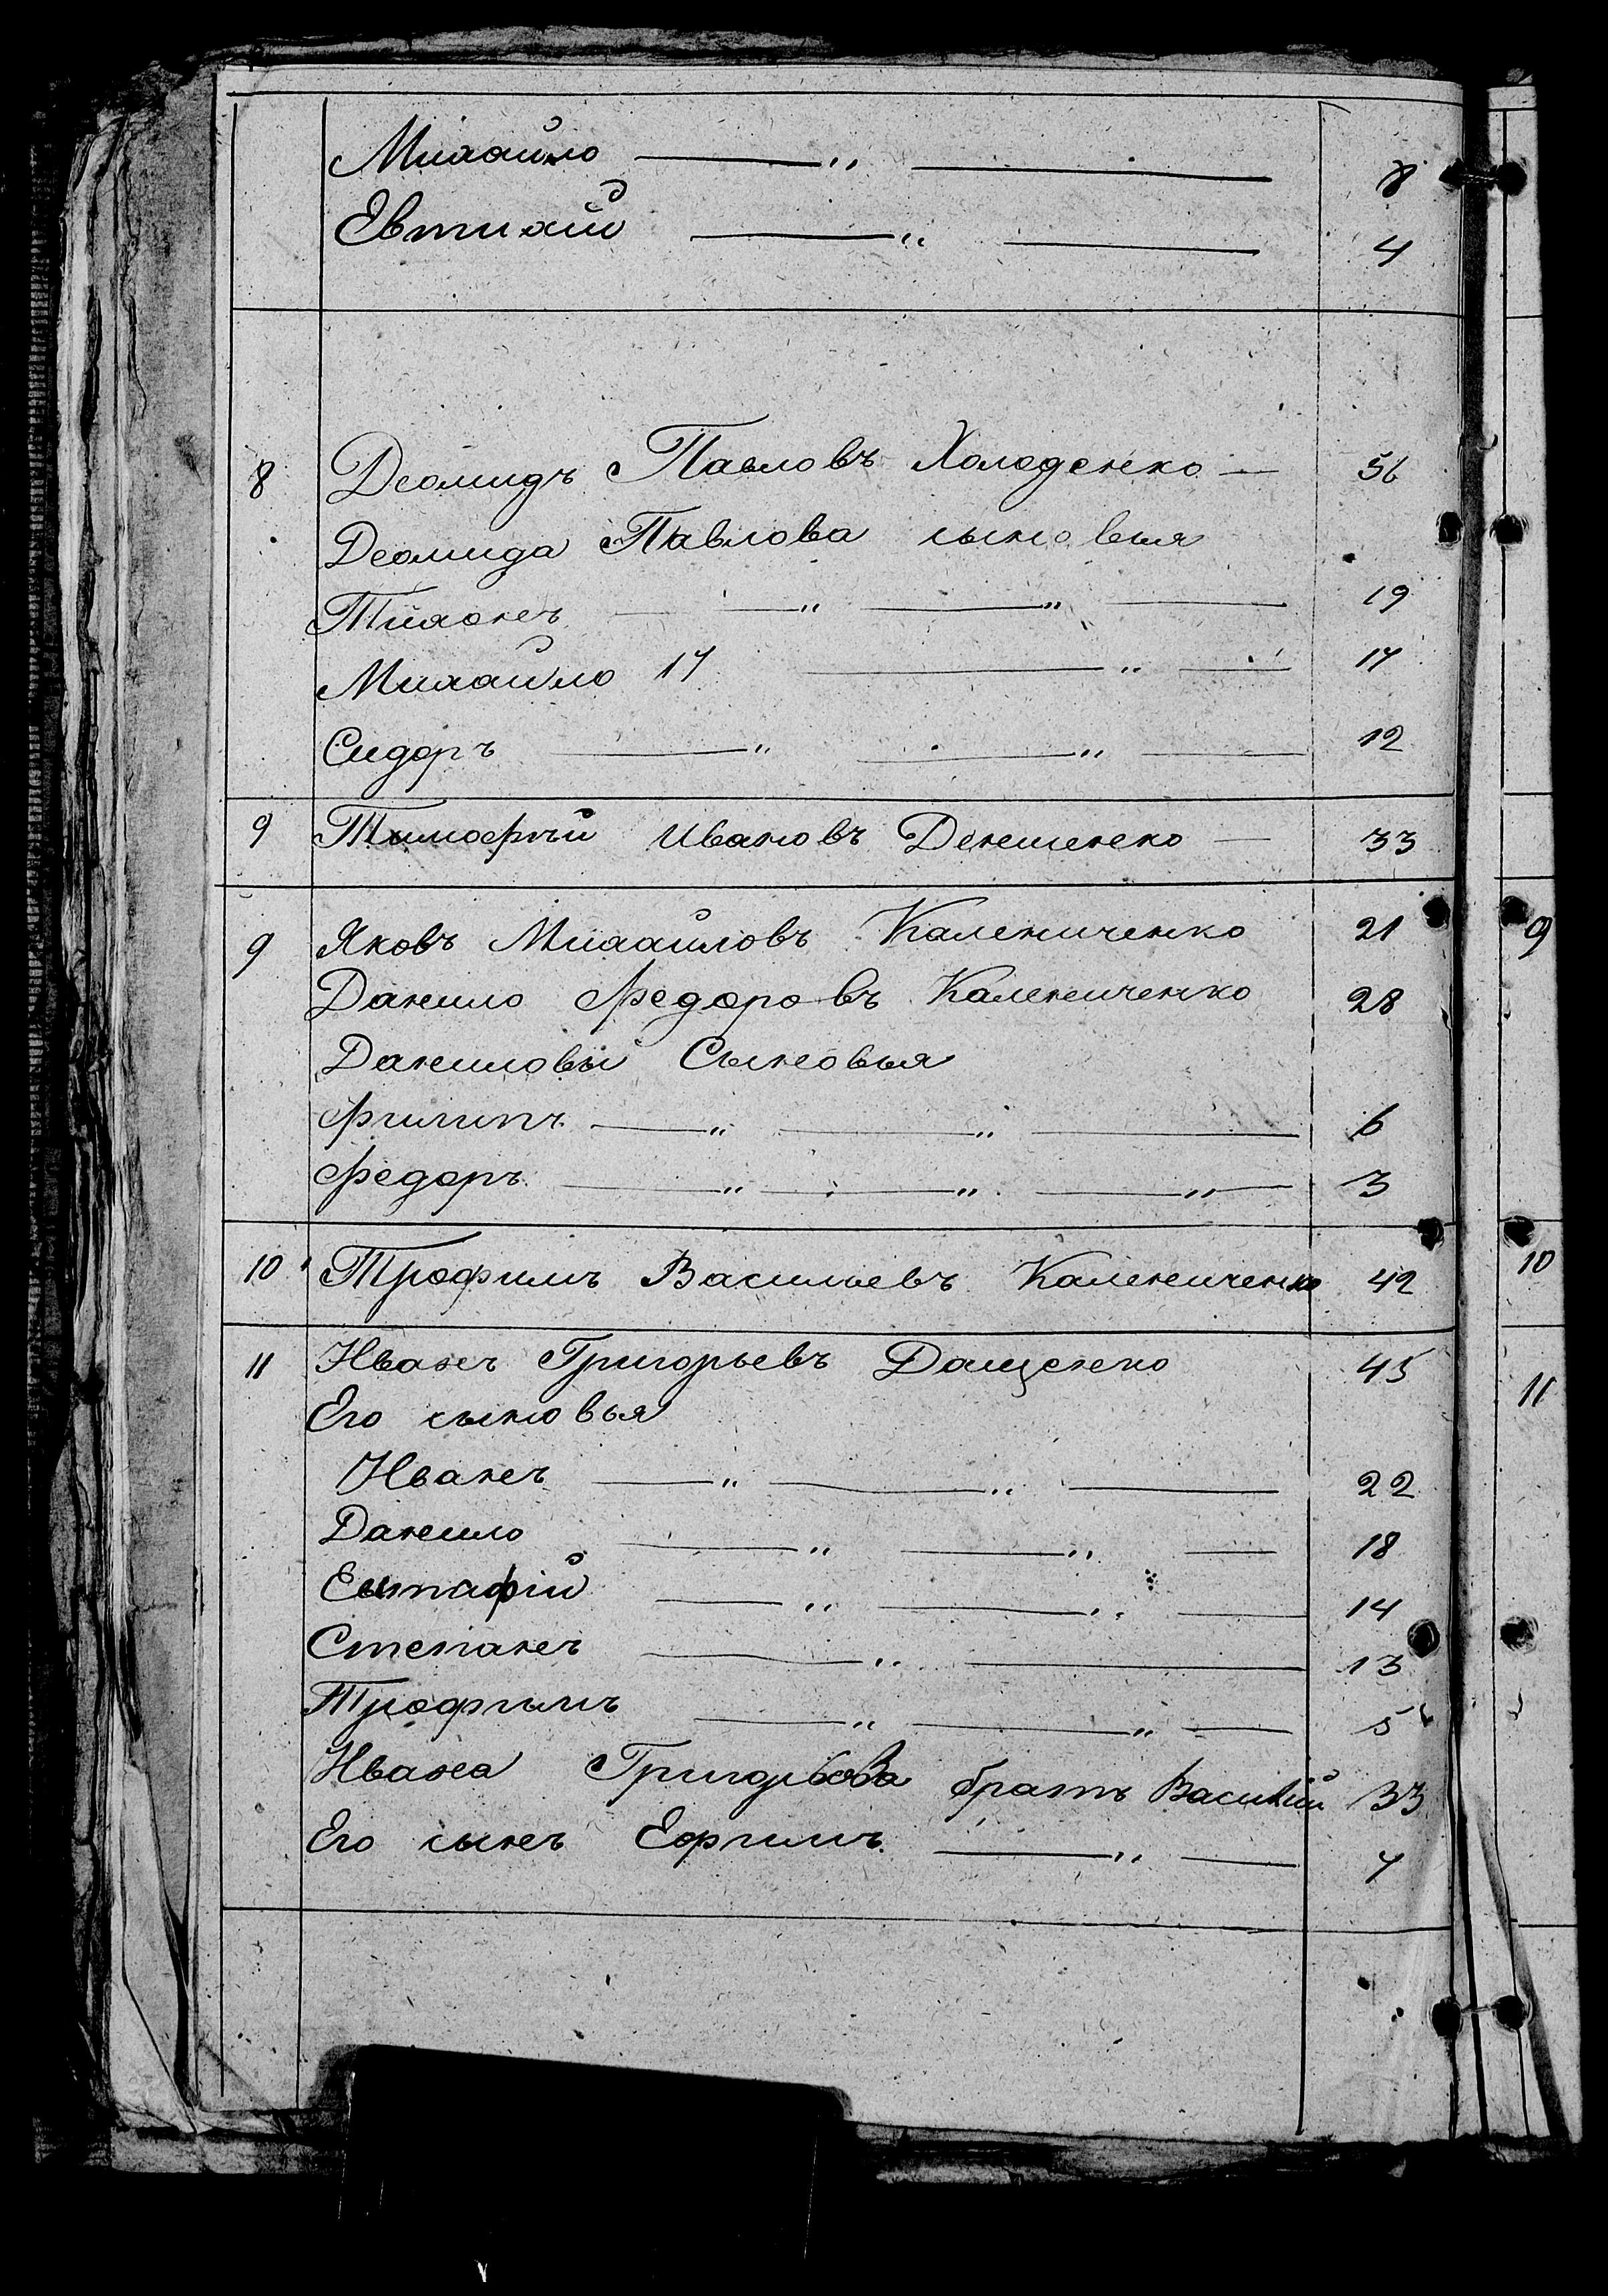 Михайло — " — 8
Евтихій — " — 4
8 Деомидъ Павловъ Холоденко — 56
Деомида Павлова сыновья
Тихонъ — " — " — 19
Михайло 17 — " — 17
Сидоръ — " — " — 12
9 Тимофѣй Ивановъ Денешенко — 33
9 Яковъ Михайловъ Калениченко 21 9
Данило Федоровъ Калениченко 28
Даниловы Сыновья
Филипъ — " — " — 6
Федоръ — " — " — " — 3
10 Трофимъ Васильевъ Калениченко 42 10
11 Иванъ Григорьевъ Дащенко 45 11
Его сыновья
Иванъ — " — " — 22
Данило — " — " — 18
Евтафій — " — " — 14
Степанъ — " — 13
Трофимъ — " — " — 5
Ивана Григорьева братъ Василій 33
Его сынъ Ефимъ — " — 7